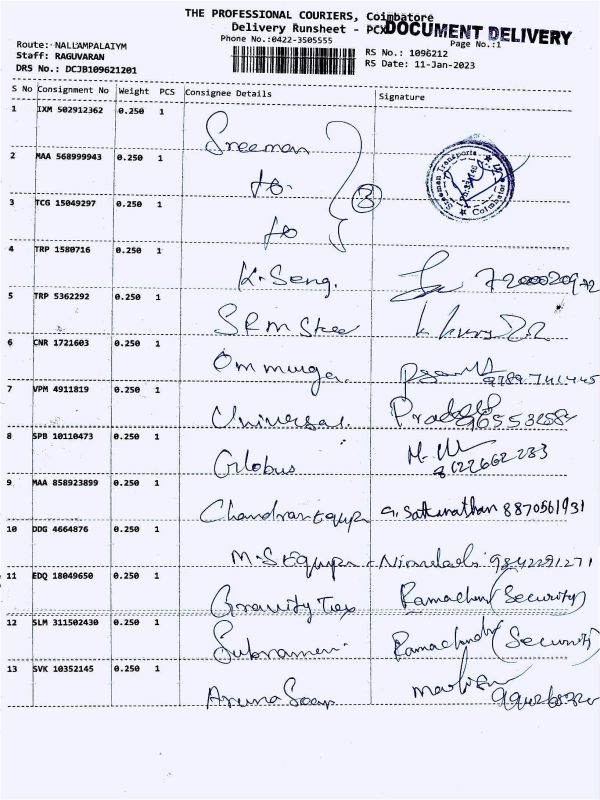 THE PROFESSIONAL COURIERS, Coimbatore
Delivery Runsheet - PCX DOCUMENT DELIVERY
Phone No.:0422-3505555 Page No.:1
Route: NALLAMPALAIYM RS No.: 1096212
Staff: RAGUVARAN RS Date: 11-Jan-2023
DRS No.: DCJB109621201
S No Consignment No Weight PCS Consignee Details Signature
1 IXM 502912362 0.250 1 Sreeman
2 MAA 568999943 0.250 1 to. 3 Sreeman Transports Coimbatore
3 TCG 15049297 0.250 1 to
4 TRP 1580716 0.250 1 K. Seng.
5 TRP 5362292 0.250 1 SRM Steel
6 CNR 1721603 0.250 1 Om muruga. 9789741445
7 VPM 4911819 0.250 1 Universal. Pradeep
8 SPB 10110473 0.250 1 Globus 8122662233
9 MAA 858923899 0.250 1 Chandran Equip G. Sattanathan 8870561931
10 DDG 4664876 0.250 1 M.S Equips 9842291271
11 EDQ 18049650 0.250 1 Gravity Tex (Security)
12 SLM 311502430 0.250 1 (Security)
13 SVK 10352145 0.250 1 Aruna Soap